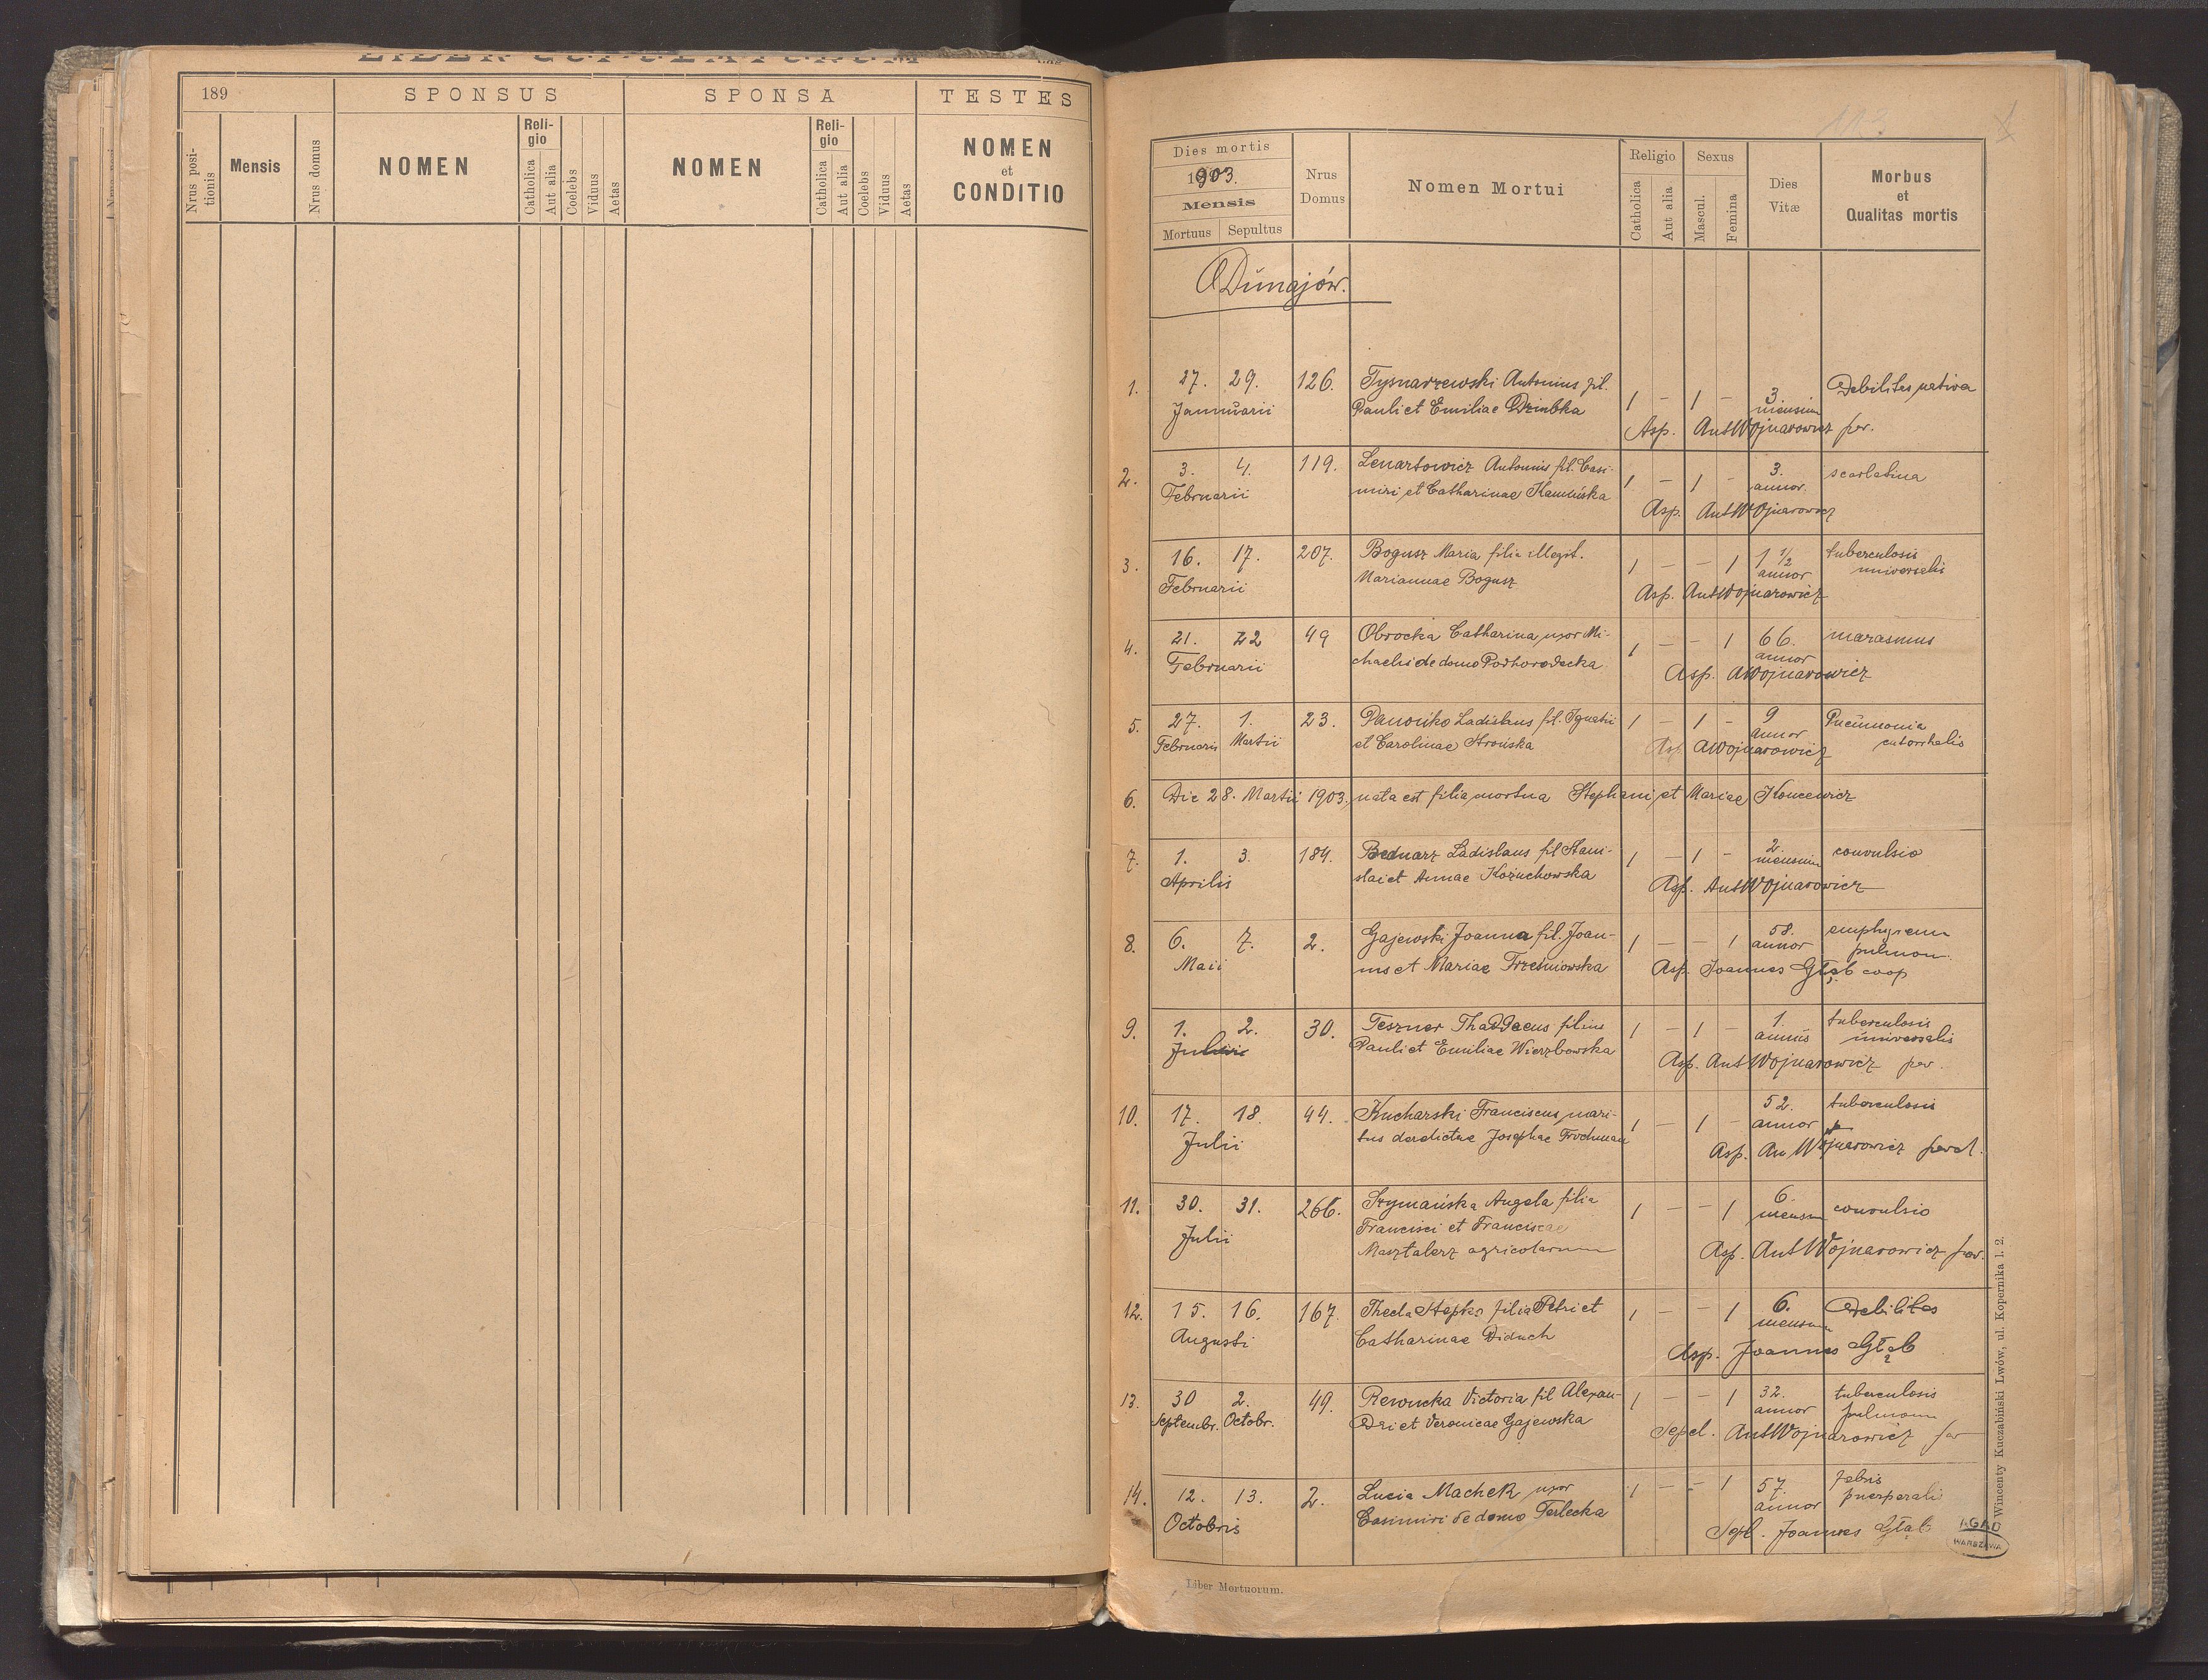 LIBER COPULATORUM
189
SPONSUS
SPONSA
TESTES
Nrus positionis
Mensis
Nrus domus
NOMEN
Religio
Catholica
Aut alia
Coelebs
Viduus
Aetas
NOMEN
Religio
Catholica
Aut alia
Coelebs
Viduus
Aetas
NOMEN
et
CONDITIO
Dies mortis
1903.
Mensis
Mortuus
Sepultus
Nrus
Domus
Nomen Mortui
Religio
Catholica
Aut alia
Sexus
Mascul.
Femina
Dies
Vitæ
Morbus
et
Qualitas mortis
Dunajów.
1. 27. 29. 126. Tysnarzewski Antonius fil. Debilitas nativa
Januarii Pauli et Emiliae Dziubka 1 – 1 – 3 mensium
Asp. Ant Wojnarowicz par.
2. 3. 4. 119. Lenartowicz Antonius fil. Casi- 3. scarlatina
Februarii miri et Catharinae Kamińska 1 – 1 – annor.
Asp. Ant Wojnarowicz
3. 16. 17. 207. Bogusz Maria filia illegit. 1 – – 1 1 1/2 tuberculosis
Februarii Mariannae Bogusz annor universalis
Asp. Ant Wojnarowicz
4. 21. 22 49 Obrocka Catharina uxor Mi- 1 – – 1 66. marasmus
Februarii chaelis de domo Podhorodecka annor
Asp. A Wojnarowicz
5. 27. 1. 23. Panońko Ladislaus fil. Ignatii 1 – 1 – 9 Pneumonia
Februarii Martii et Carolinae Strońska annor catorrhalis
Asp. A Wojnarowicz
6. Die 28. Martii 1903. nata est filia mortua Stephani et Mariae Koncewicz
7. 1. 3. 184. Bednarz Ladislaus fil Stani- 1 – 1 – 2. convulsio
Aprilis slai et Annae Kożuchowska mensium
Asp. Ant Wojnarowicz
8. 6. 7. 2. Gajewski Joanna fil. Joan- 1 – – 1 58. emphysem
Maii nis et Mariae Trześniowska annor pulmon.
Asp. Joannes Głąb coop
9. 1. 2. 30. Teszner Thaddaeus filius 1 – 1 – 1. tuberculosis
Julii Pauli et Emiliae Wierzbowska annus universalis
Asp. Ant Wojnarowicz par.
10. 17. 18. 44. Kucharski Franciscus, mari- 1 – 1 – 52. tuberculosis
Julii tus derelictae Josephae Trochman annor
Asp. An Wojnarowicz paroch.
11. 30. 31. 266. Szymańska Angela filia 1 – – 1 6. convulsio
Julii Francisci et Franciscae mensium
Masztalerz agricolarum Asp. Ant Wojnarowicz par.
12. 15. 16. 167. Thecla Stepko filia Petri et 1 – – 1 6. Debilitas
Augusti Catharinae Diduch mensium
Asp. Joannes Głąb
13. 30 2. 49. Rewucka Victoria fil Alexan- 1 – – 1 32. tuberculosis
Septembr. Octobr. dri et Veronicae Gajewska annor pulmonum
Sepel. Ant Wojnarowicz par
14. 12. 13. 2. Lucia Machek uxor 1 – – 1 57. febris
Octobris Casimiri de domo Terlecka annor puerperalis
Sepl. Joannes Głąb
AGAD
WARSZAWA
Wincenty Kuczabiński Lwów, ul. Kopernika l. 2.
Liber Mortuorum.